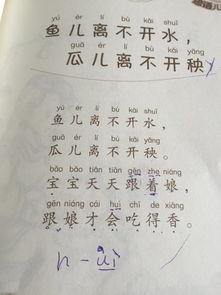 yú ér lí bù kāi shuǐ
鱼儿离不开水，
guā ér lí bù kāi yāng
瓜儿离不开秧
yú ér lí bù kāi shuǐ
鱼儿离不开水，
guā ér lí bù kāi yāng
瓜儿离不开秧。
bǎo bāo tiān tiān gēn zhe niáng
宝宝天天跟着娘，
gēn niáng cái huì chī de xiāng
跟娘才会吃得香。